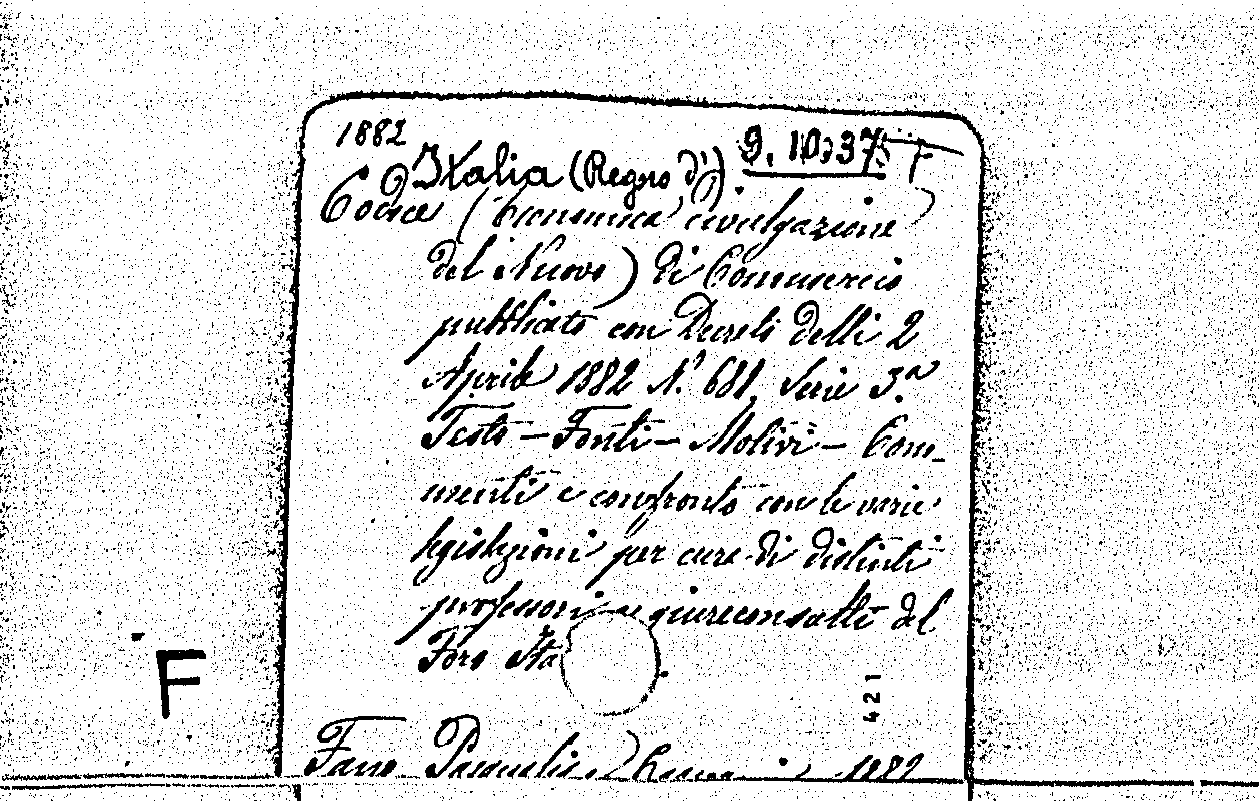 1882
9. 10. 37. F
Italia (Regno d')
Codice (Economica divulgazione
del Nuovo) di Commercio
pubblicato con Decreti delli 2
Aprile 1882 N.º 681, Serie 3.ª
Testo – Fonti – Motivi – Com-
menti e confronto con le varie
legislazioni per cura di distinti
professori e giureconsulti del
Foro Ita
421
F
Fano Pasquale. 1882